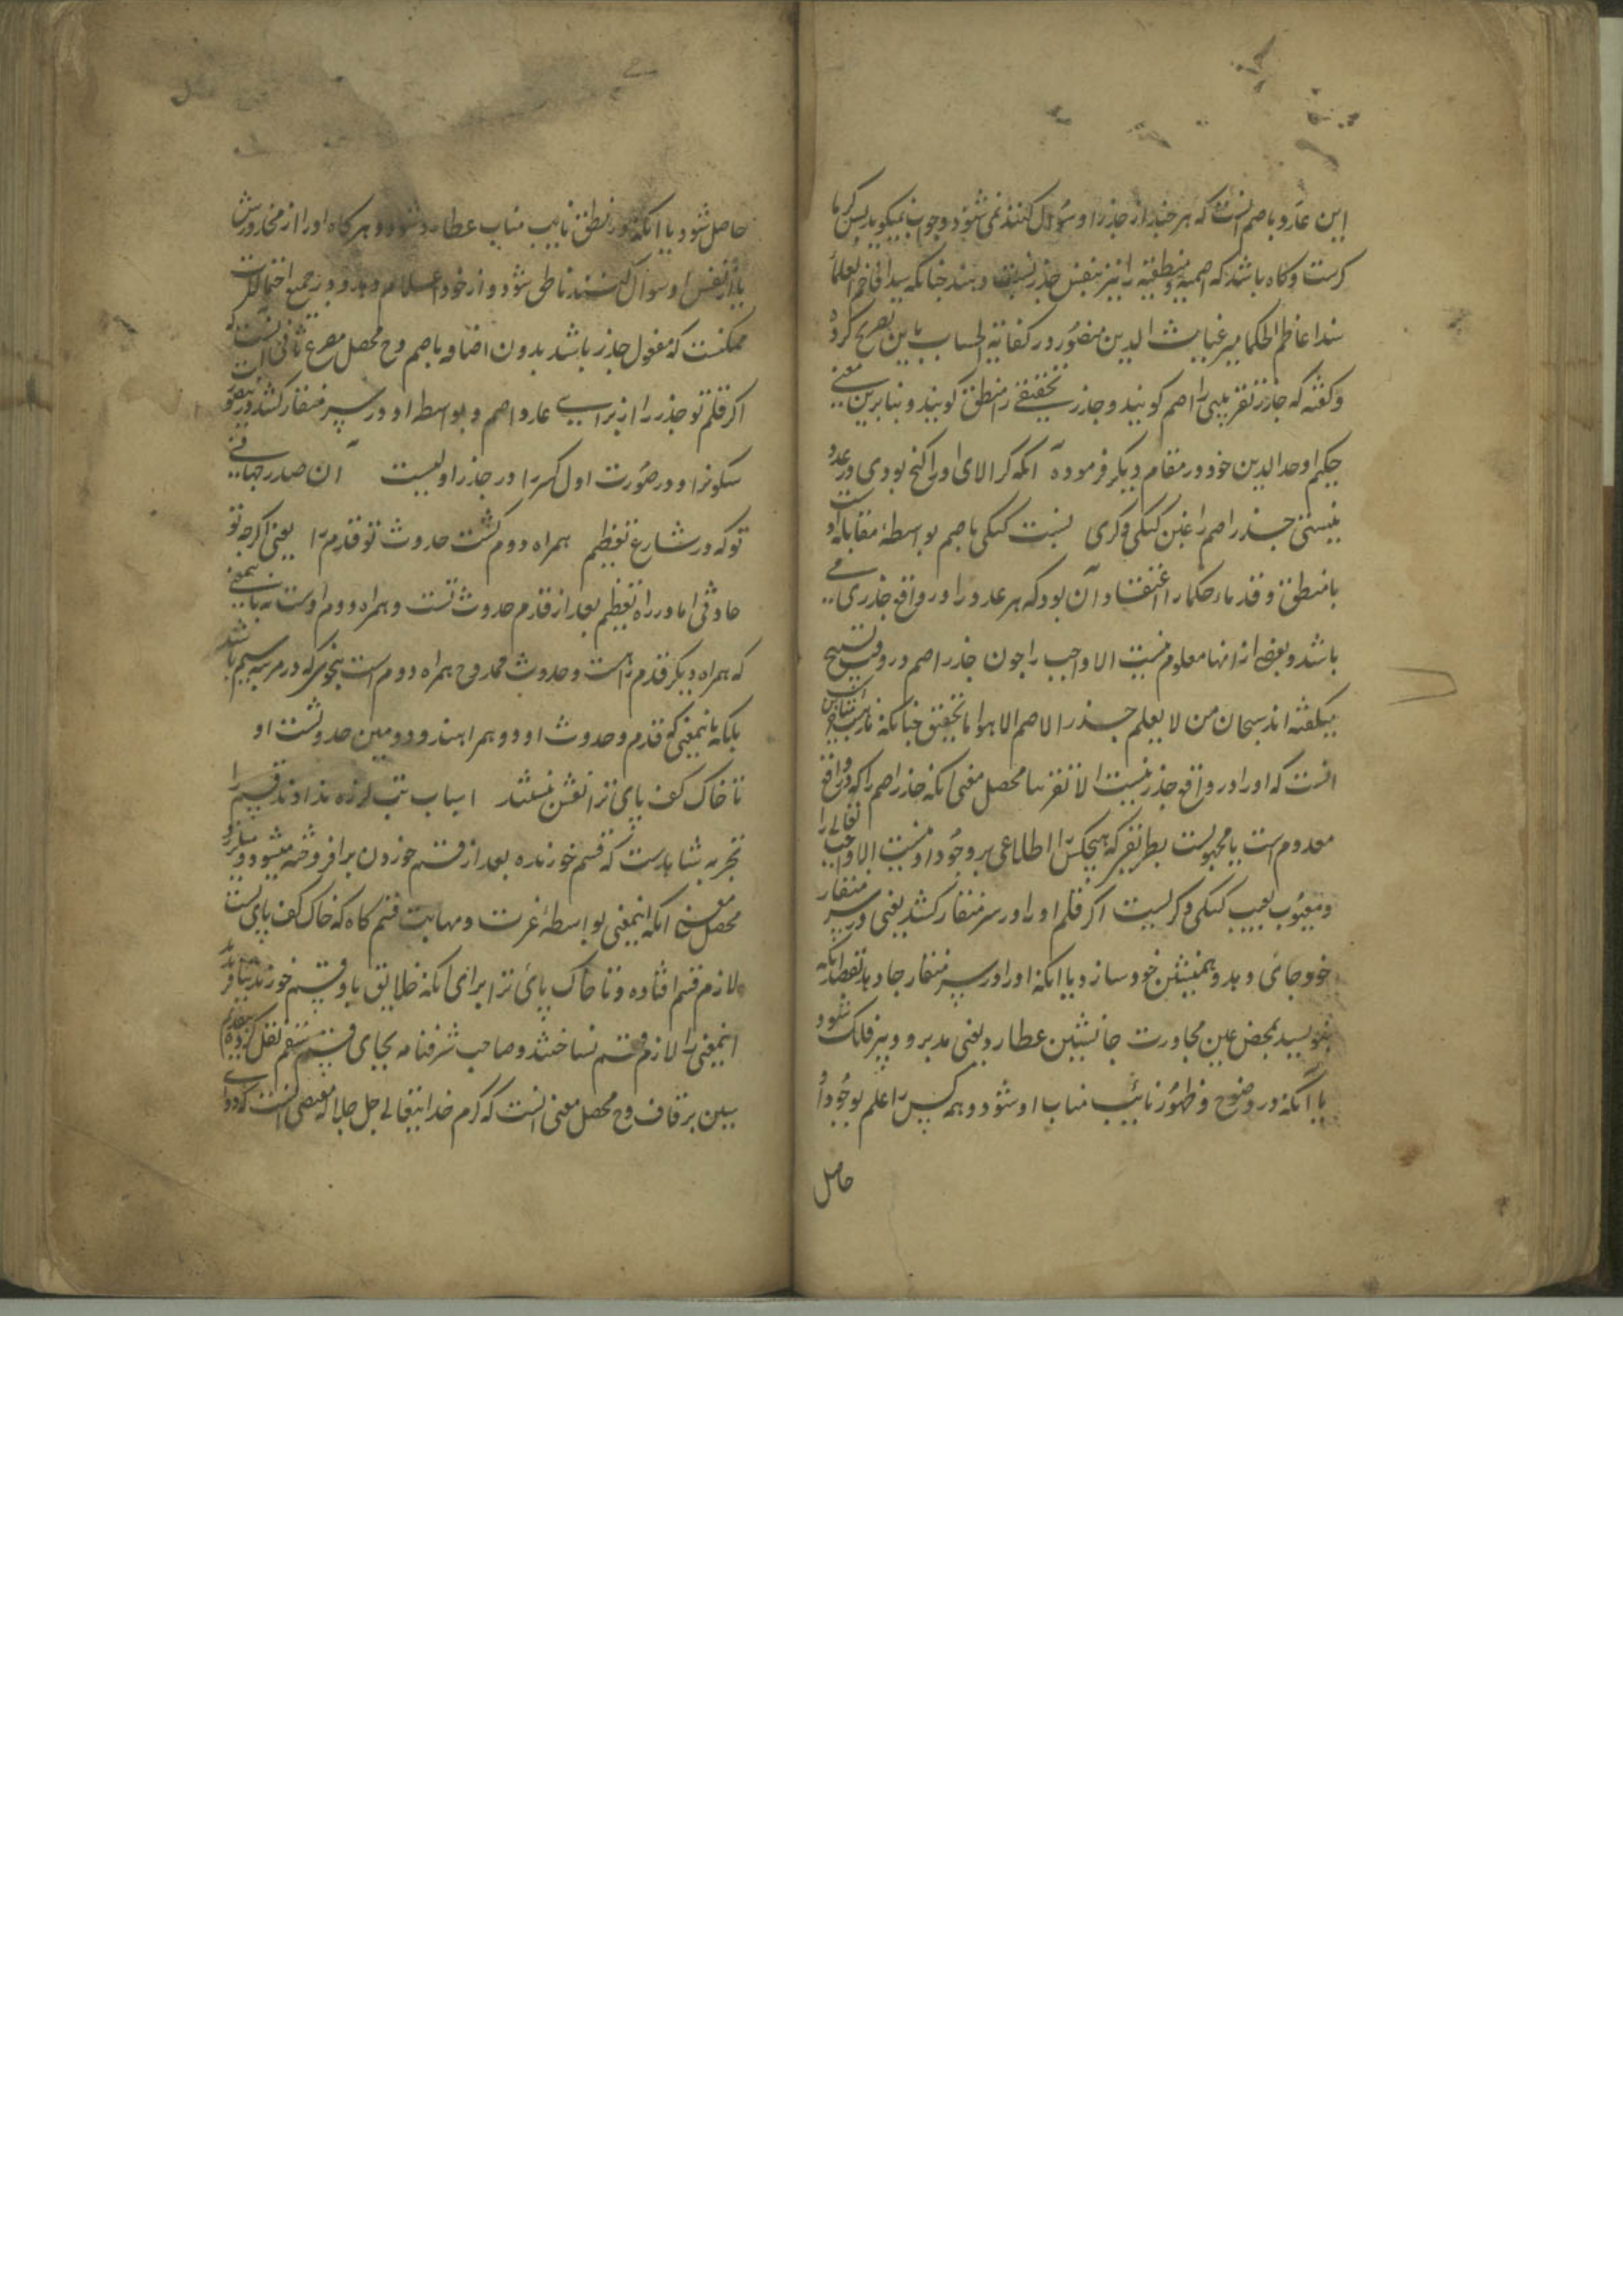 این عدد باصم آنست که هر چند از جذر او سؤال کنند نمی شنود و جواب نمیگوید پس کر یا
کرست وکاه باشد که اصمیة ومنطقیة را نیز بنفس جذر نسبت دهند چنانکه سید افاخم العلماء
سند اعاظم الحکما میر غیاث الدین منصور در کفایة الحساب باین تصریح کرده
وکفته که جذر تقریبی را اصم کویند و جذر تحقیقی را منطق کویند و بنابرین معنی
حکیم اوحد الدین خود در مقام دیکر فرموده آنکه کر الای او را کنج بودی در عدد
نیستی جذر اصم را غبن کنکی و کری نسبت کنکی باصم بواسطهٔ مقابلهٔ او
با منطق و قدماء حکما را اعتقاد آن بود که هر عدد را در واقع جذری می
باشد و بعضی از انها معلوم نیست الا واجب را چون جذر اصم و در وقت تسبیح
میکفته اند سبحان من لا یعلم جذر الاصم الا هو اما تحقیق چنانکه مذهب
انست که او را در واقع جذر نیست الا تقریبا محصل معنی آنکه جذر اصم را که در واقع
معدوم است یا مجهولست بطریقی که هیچکس را اطلاعی بر وجود او نیست الا واجب تعالی را
ومعیوب بعیب کنکی و کریست اکر قلم او را در سر منقار کشد یعنی در سر منقار
خود جای دهد و همنشین خود سازد یا آنکه او را در سر منقار جا دهد بقصد آنکه
بنویسد بمحض عین مجاورت جانشین عطارد یعنی مدبر و دبیر فلک شود
یا آنکه در وضوح و ظهور نایب مناب او شود و همه کس را علم بوجود او
حاصل
حاصل شود یا آنکه در نطق نایب مناب عطارد شود و هر کاه او را از مخارج
یا از نفس او سوال کنند ناطق شود و از خود اعلام دهد و در جمیع احتمالات
ممکنست که مفعول جذر باشد بدون اضافه باصم وح محصل مصرع ثانی آنست که
اکر قلم تو جذر را از برای عدد اصم و بواسطه او در سر منقار کشد
سکونرا و در صورت اول کر را در جذر اولیست آن صدر جهانی
تو که در شارع تعظیم همراه دوم کشت حدوث تو قدم را یعنی اکرچه تو
حادثی اما در راه تعظیم بعد از قدم حدوث تست و همراه دوم اوست نه باینمعنی
که همراه دیکر قدم راست و حدوث ممدوح همراه دوم است بنحوی که در مرتبه سیم باشد
بلکه باینمعنی که قدم و حدوث او دو همراهند و دومین حدوثست او
تا خاک کف پای ترا نقش نبستند اسباب تب لرزه ندادند قسم را
تجربه شاهدست که قسم خورنده بعد از قسم خوردن بر افروخته میشود و میلرزد
محصل معنی آنکه اینمعنی بواسطهٔ عزت و مهابت قسم کاه که خاک کف پای تست
لازم قسم افتاده و تا خاک پای ترا برای آنکه خلایق باو قسم خورند نیافریدند
اینمعنی را لازم قسم نساختند و صاحب شرفنامه بجای قسم سقم نقل کرده
ببین بر قاف وح محصل معنی انست که کرم خدایتعالی جل جلاله مقتضی آنست که دوا